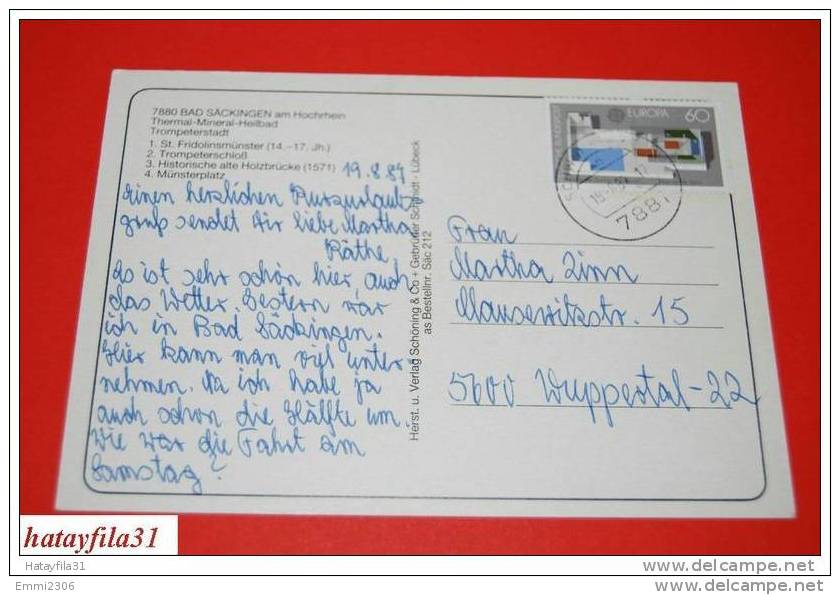 7880 BAD SÄCKINGEN am Hochrhein
Thermal-Mineral-Heilbad
Trompeterstadt
1. St. Fridolinsmünster (14.-17. Jh.)
2. Trompeterschloß
3. Historische alte Holzbrücke (1571)
4. Münsterplatz
19.8.87
Einen herzlichen Kurzurlaubs-
gruß sendet Dir liebe Martha
Käthe
Es ist sehr schön hier, auch
das Wetter. Gestern war
ich in Bad Säckingen.
Hier kann man viel unter-
nehmen. Na ich habe ja
auch schon die Hälfte um.
Wie war die Fahrt am
Samstag?
Herst. u. Verlag Schöning & Co + Gebrüder Schmidt - Lübeck
as Bestellnr. Säc 212
EUROPA 60
788
Frau
Martha Zinn
15
5600 Wuppertal-22
hatayfila31
Hatayfila31
www.delcampe.net
Emmi2306
www.delcampe.net